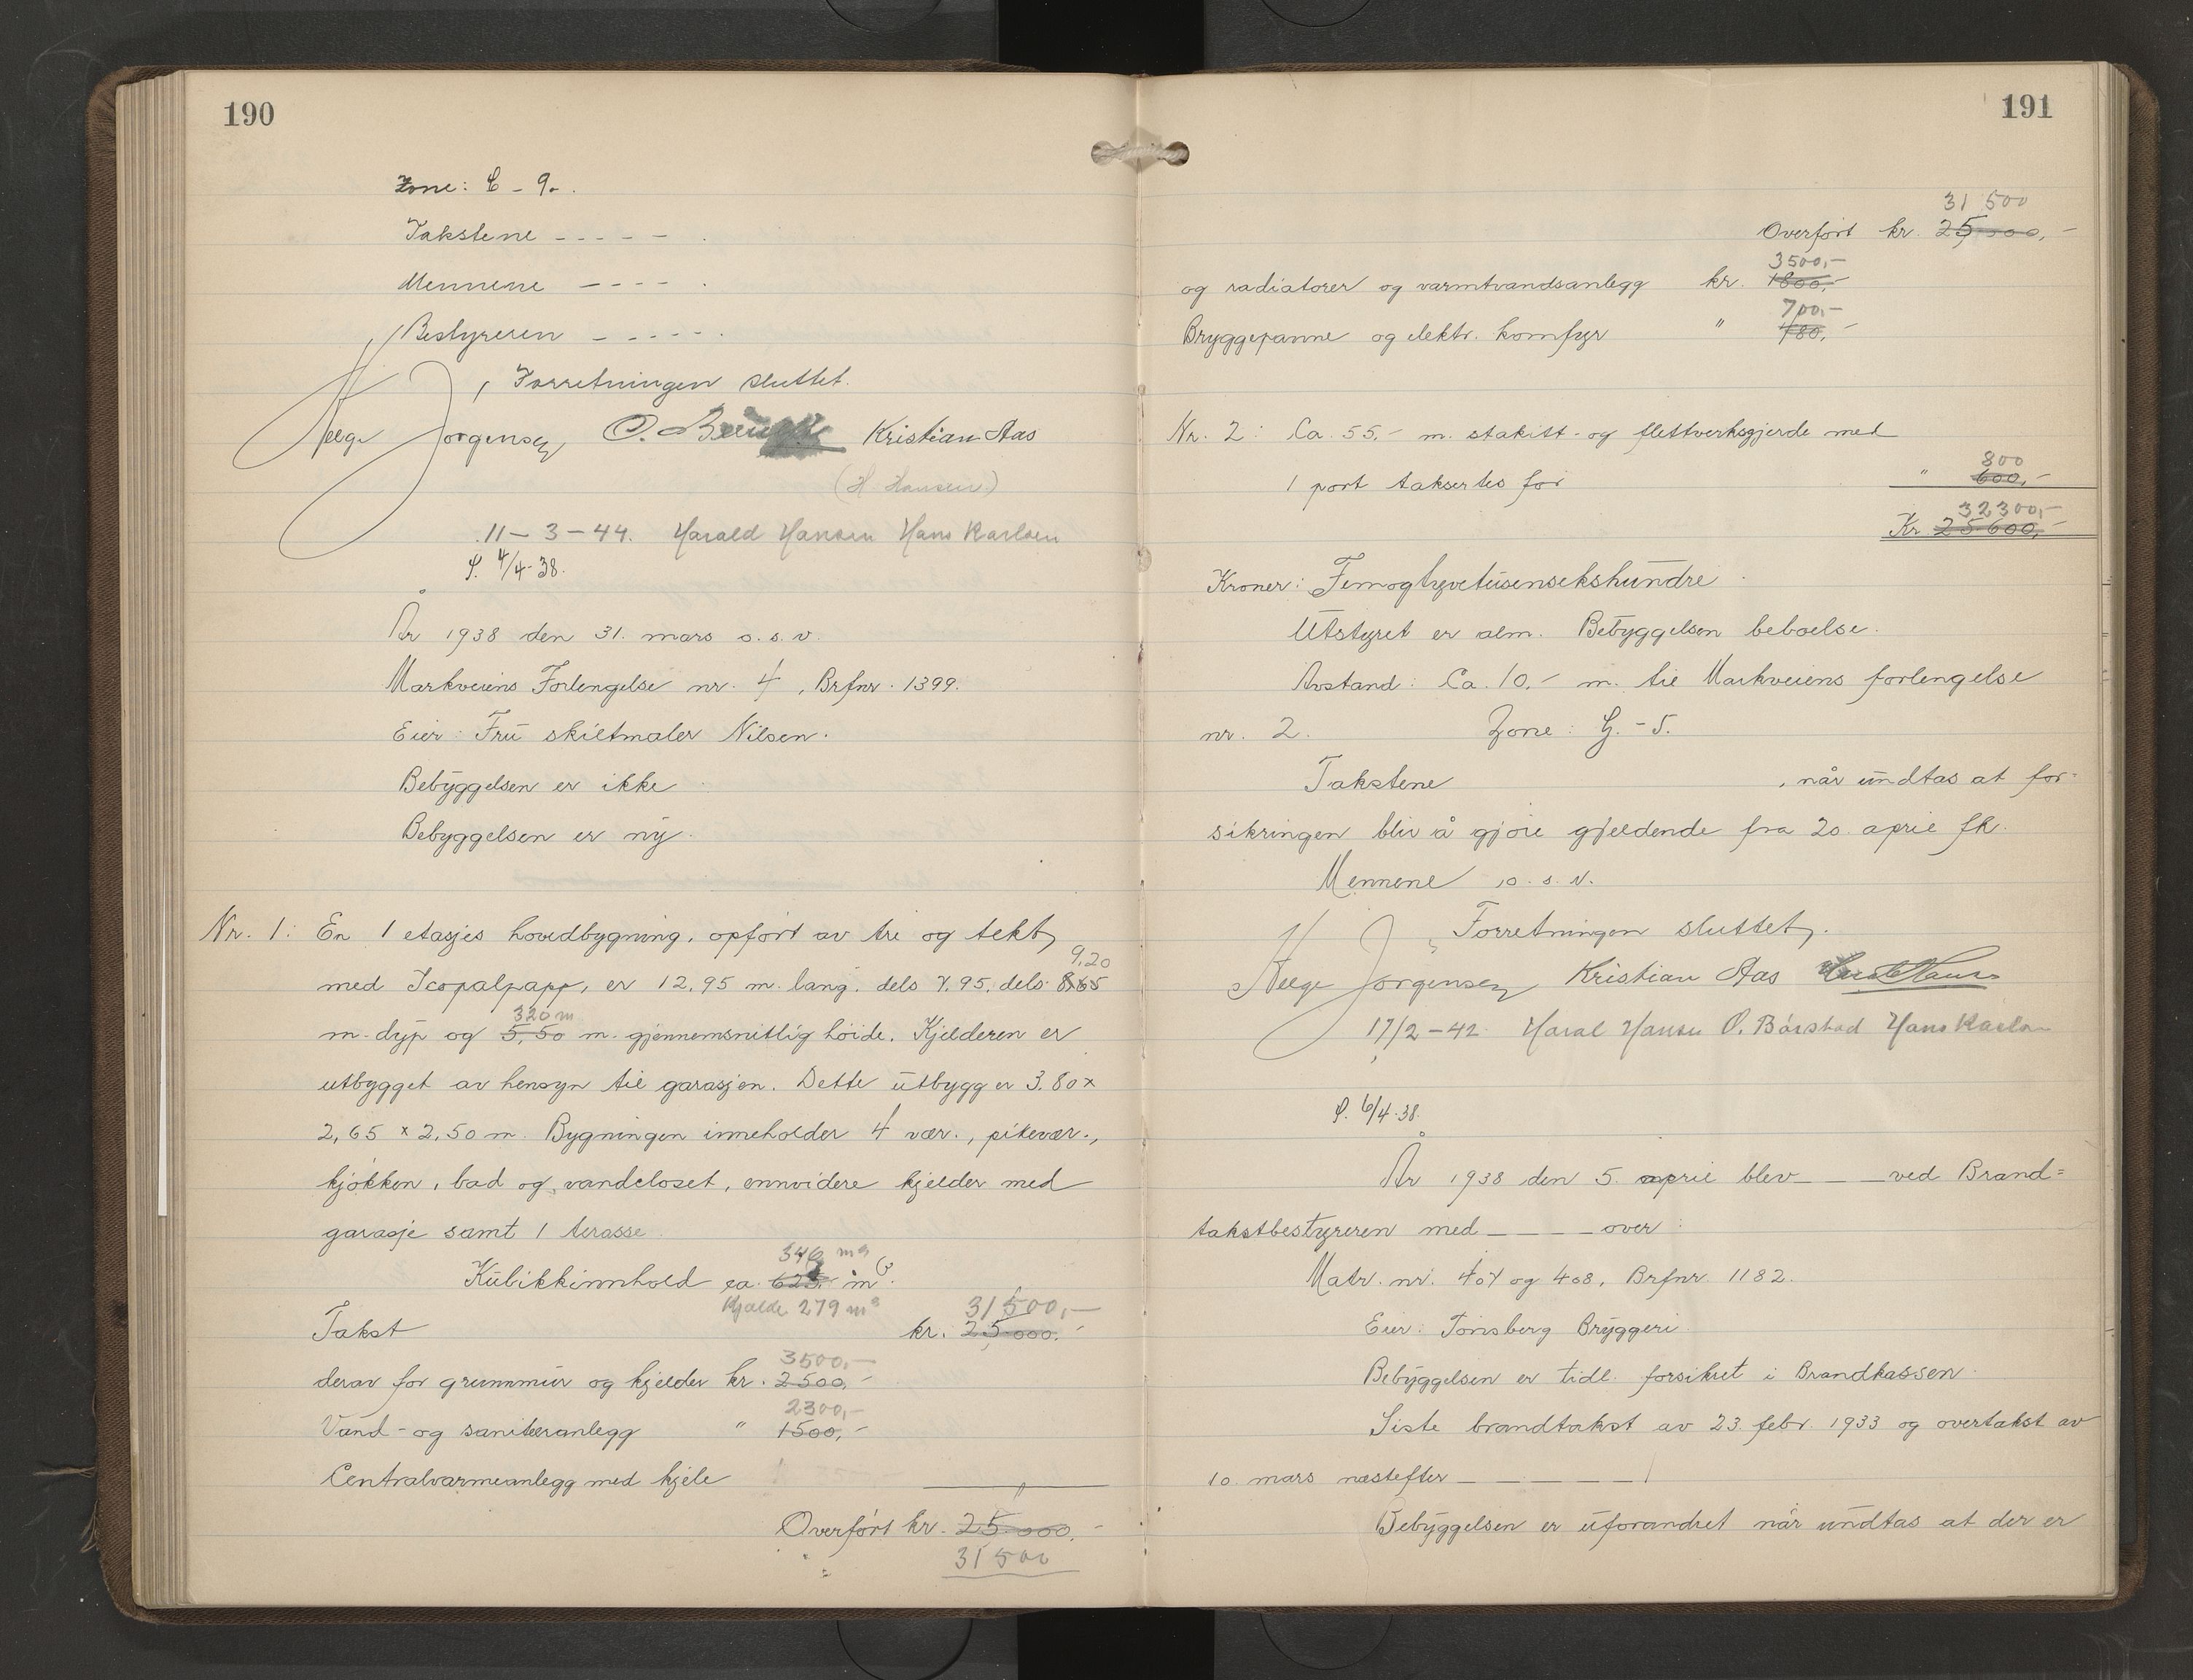 190
Zone: C - 9.
Takstene - - - - - .
Mennene - - - - .
Bestyreren - - - - - .
, Forretningen sluttet.
Helge Jørgensen, O. Kristian Aas
(H. Hansen)
11 - 3 - 44. Harald Hansen Hans Karlsen
S. 4/4-38.
År 1938 den 31. mars o. s. v.
Markveiens Forlengelse nr. 4, Brfnr. 1399.
Eier: Fru skiltmaler Nilsen.
Bebyggelsen er ikke
Bebyggelsen er ny.
Nr. 1: En 1 etasjes hovedbygning, opført av tre og tekt,
9,20
med Icopalpapp, er 12,95 m. lang. dels 7,95, dels 8,65
320 m
m. dyp og 5,50 m. gjennemsnitlig høide. Kjelderen er
utbygget av hensyn til garasjen. Dette utbygg er 3,80 x
2,65 x 2,50 m. Bygningen inneholder 4 vær., pikevær.,
kjøkken, bad og vandcloset, ennvidere kjelder med
garasje samt 1 terasse.
346 m³
Kubikkinnhold ca. 625 m³.
Kjelde 279 m³ 31500,-
Takst kr. 25.000.-
3500,-
derav for grunnmur og kjelder kr. 2500,-
2300,-
Vand- og saniteranlegg " 1500,-
Centralvarmeanlegg med kjele
Overført kr. 25.000.-
31500
191
31 500
Overført kr. 25.000,-
3500,-
og radiatorer og varmtvandsanlegg kr. 1800,-
700,-
Bryggepanne og elektr. komfyr " 480,-
Nr. 2: Ca. 55,- m. stakitt- og flettverksgjerde med
800
1 port taksertes for " 600,-
32300,-
Kr 25.600,-
Kroner: Femogtyvetusensekshundre
Utstyret er alm. Bebyggelsen beboelse.
Avstand: Ca. 10,- m. til Markveiens forlengelse
nr. 2. Zone: G. - 5.
Takstene , når undtas at for-
sikringen blir å gjøre gjeldende fra 20. april fk.
Mennene o. s. v.
, Forretningen sluttet,.
Helge Jørgensen Kristian Aas
17/2 - 42 Haral Hansen O. Bårstad Hans Karlsen
S. 6/4-38.
År 1938 den 5. april blev _ _ _ ved Brand-
takstbestyreren med _ _ _ _ over:
Matr. nr. 407 og 408, Brfnr. 1182.
Eier: Tønsberg Bryggeri
Bebyggelsen er tidl. forsikret i Brandkassen.
Siste brandtakst av 23. febr. 1933 og overtakst av
10. mars næstefter _ _ _ _ _
Bebyggelsen er uforandret når undtas at der er